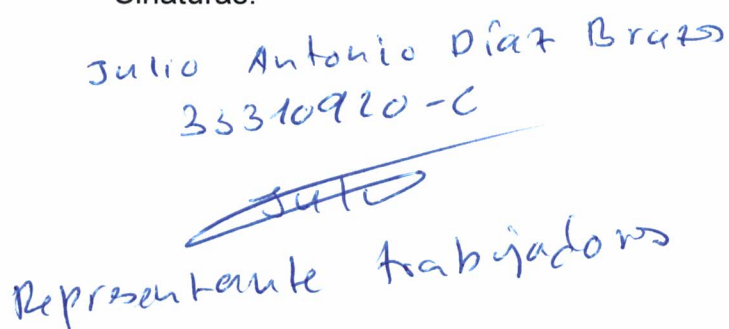 Sinaturas:
Julio Antonio Díaz Brazo
33310920-C
Julio
Representante trabajadores